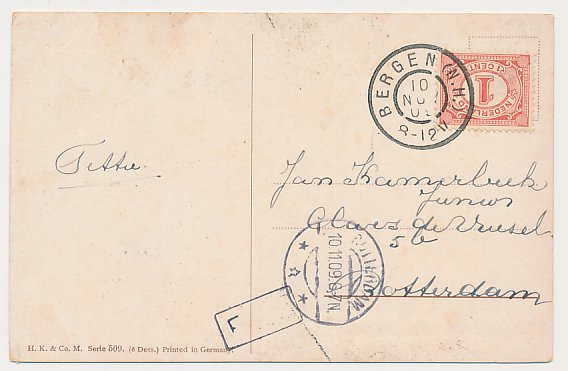 BERGEN (N.H.)
10
NOV
8-12V
NEDERLAND
1
1 CENT
Tettie.
Jan Kamerbeek
Junior
Claes de Vriesel.
5b
Rotterdam
ROTTERDAM
10.11.09. 6-7N.
F
H. K. & Co. M. Serie 509. (6 Dess.) Printed in Germany.